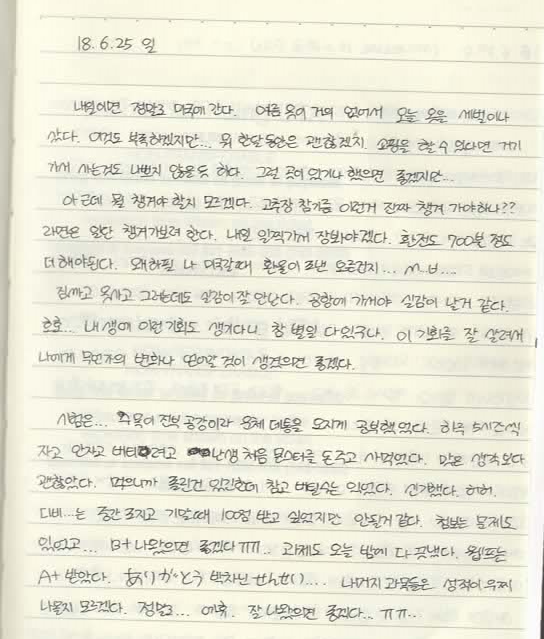 18.6.25 일
내일이면 정말로 미국에 간다. 여름 옷이 거의 없어서 오늘 옷을 세벌이나
샀다. 이것도 부족하겠지만... 뭐 한달 동안은 괜찮겠지 쇼핑을 할 수 있다면 거기
가서 사는것도 나쁘지 않을듯 하다. 그럴 곳이 있거나 했으면 좋겠지만...
아 근데 뭘 챙겨야 할지 모르겠다. 고추장 참기름 이런거 진짜 챙겨 가야하나??
라면은 일단 챙겨가보려 한다. 내일 일찍가서 장봐야겠다. 환전도 700불 정도
더 해야된다. 왜 하필 나 미국갈때 환율이 오른건지... M..U....
짐싸고 옷사고 그러는데도 실감이 잘 안난다. 공항에 가서야 실감이 날거 같다.
호호... 내 생에 이런 기회도 생기다니 참 별일 다있구나. 이 기회를 잘 살려서
나에게 무언가의 변화나 얻어갈 것이 생겼으면 좋겠다.
시험은... 주목이 전부 공강이라 운체 데통을 오지게 공부했었다. 하루 5시간씩
자고 안자고 버티려고 난생 처음 몬스터를 돈주고 사먹었다. 맛은 생각보다
괜찮았다. 먹으니까 졸린건 있긴한데 참고 버틸수는 있었다. 신기했다. 허허.
디비...는 중간 조지고 기말때 100점 받고 싶었지만 안될거 같다. 첨보는 문제도
있었고... B+ 나왔으면 좋겠다 ㅠㅠ.. 과제도 오늘 밤에 다 끝냈다. 웹프는
A+ 받았다. ありがとう 박차닌 せんせい.... 나머지 과목들은 성적이 우찌
나올지 모르겠다. 정말로... 어휴. 잘 나왔으면 좋겠다.. ㅠㅠ..